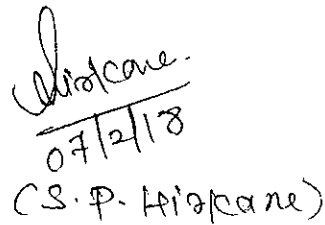 Hirkane.
07/2/18
(S.P. Hirkane)